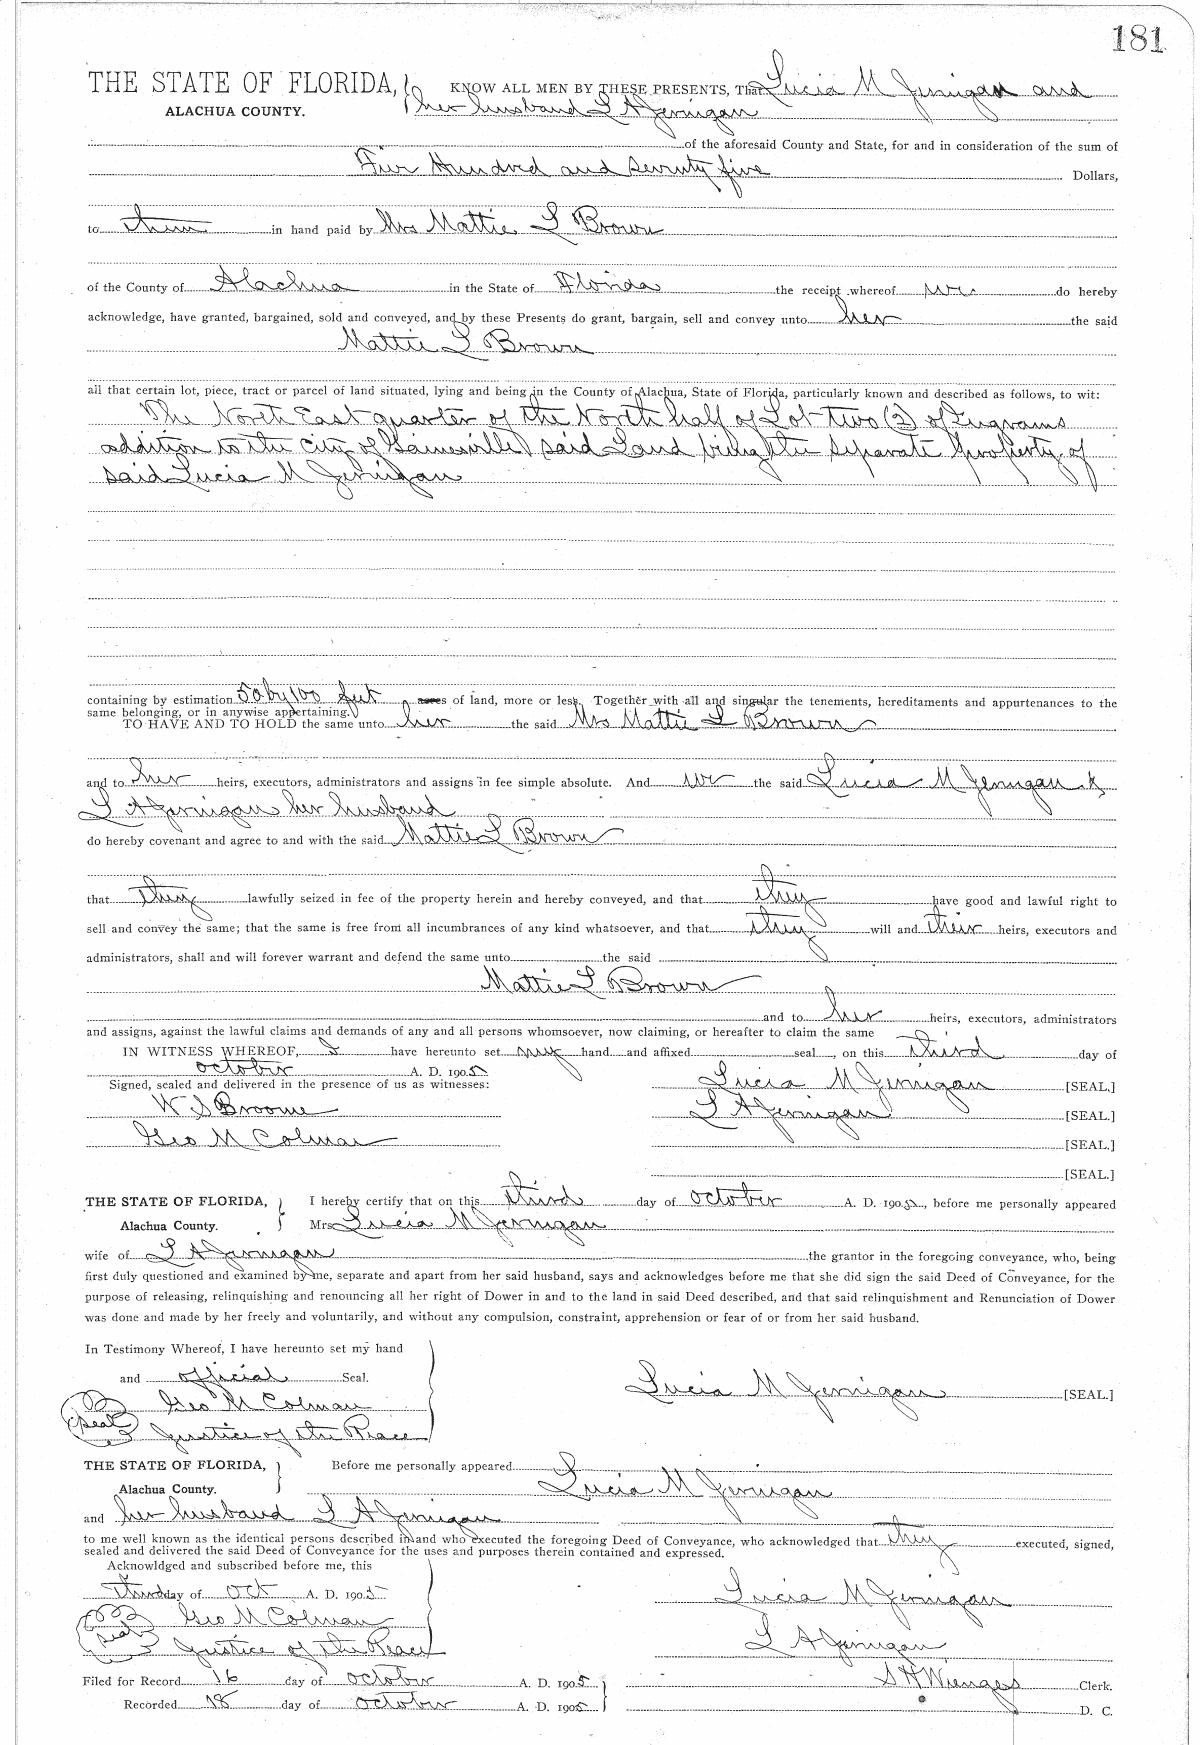 181
THE STATE OF FLORIDA, KNOW ALL MEN BY THESE PRESENTS, That Lucia M Jernigan and
ALACHUA COUNTY. her husband L A Jernigan
of the aforesaid County and State, for and in consideration of the sum of
Five Hundred and Seventy five Dollars,
to them in hand paid by Mrs Mattie L Brown
of the County of Alachua in the State of Florida the receipt whereof we do hereby
acknowledge, have granted, bargained, sold and conveyed, and by these Presents do grant, bargain, sell and convey unto her the said
Mattie L Brown
all that certain lot, piece, tract or parcel of land situated, lying and being in the County of Alachua, State of Florida, particularly known and described as follows, to wit:
The North East quarter of the North half of Lot two (2) of Ingrams
addition to the city of Gainesville said Land being the separate property of
said Lucia M Jernigan
containing by estimation 50 by 100 feet of land, more or less, Together with all and singular the tenements, hereditaments and appurtenances to the
same belonging, or in anywise appertaining.
TO HAVE AND TO HOLD the same unto her the said Mrs Mattie L Brown
and to her heirs, executors, administrators and assigns in fee simple absolute. And we the said Lucia M Jernigan &
L A Jernigan her husband
do hereby covenant and agree to and with the said Mattie L Brown
that they lawfully seized in fee of the property herein and hereby conveyed, and that they have good and lawful right to
sell and convey the same; that the same is free from all incumbrances of any kind whatsoever, and that they will and their heirs, executors and
administrators, shall and will forever warrant and defend the same unto the said
Mattie L Brown
and to her heirs, executors, administrators
and assigns, against the lawful claims and demands of any and all persons whomsoever, now claiming, or hereafter to claim the same
IN WITNESS WHEREOF, I have hereunto set my hand and affixed seal, on this third day of
october A. D. 1905
Signed, sealed and delivered in the presence of us as witnesses: Lucia M Jernigan [SEAL.]
W S Broome L A Jernigan [SEAL.]
Geo M Colman [SEAL.]
[SEAL.]
THE STATE OF FLORIDA, I hereby certify that on this third day of october A. D. 1905, before me personally appeared
Alachua County. Mrs Lucia M Jernigan
wife of L A Jernigan the grantor in the foregoing conveyance, who, being
first duly questioned and examined by me, separate and apart from her said husband, says and acknowledges before me that she did sign the said Deed of Conveyance, for the
purpose of releasing, relinquishing and renouncing all her right of Dower in and to the land in said Deed described, and that said relinquishment and Renunciation of Dower
was done and made by her freely and voluntarily, and without any compulsion, constraint, apprehension or fear of or from her said husband.
In Testimony Whereof, I have hereunto set my hand
and official Seal. Lucia M Jernigan [SEAL.]
Geo M Colman
Seal Justice of the Peace
THE STATE OF FLORIDA, Before me personally appeared
Alachua County. Lucia M Jernigan
and her husband L A Jernigan
to me well known as the identical persons described in and who executed the foregoing Deed of Conveyance, who acknowledged that they executed, signed,
sealed and delivered the said Deed of Conveyance for the uses and purposes therein contained and expressed.
Acknowldged and subscribed before me, this
third day of Oct A. D. 1905 Lucia M Jernigan
Geo M Colman
seal Justice of the Peace L A Jernigan
Filed for Record 16 day of october A. D. 1905 S H Wienges Clerk.
Recorded 18 day of october A. D. 1905 D. C.